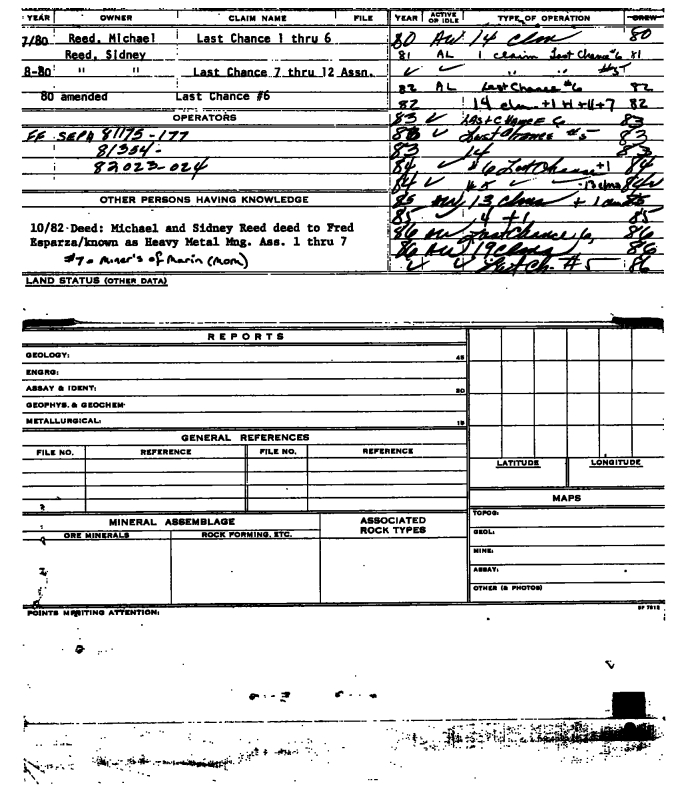 YEAR OWNER CLAIM NAME FILE
7/80 Reed, Michael Last Chance 1 thru 6
Reed, Sidney
8-80 " " Last Chance 7 thru 12 Assn.
80 amended Last Chance #6
OPERATORS
FF SEPA 81175-177
81354-
82023-024
OTHER PERSONS HAVING KNOWLEDGE
10/82 Deed: Michael and Sidney Reed deed to Fred
Esparza/known as Heavy Metal Mng. Ass. 1 thru 7
#7 - Miner's of Marin (Mom)
LAND STATUS (OTHER DATA)
YEAR ACTIVE OR IDLE TYPE OF OPERATION CREW
80 AW 14 clm 80
81 AL 1 claim Last Chance #6 81
✓ ✓ " " #5
82 AL Last Chance #6 82
82 14 clm +1 82
83 ✓ Last Chance 6 83
83 ✓ Last Chance #5 83
83 14
84 ✓ #6 Last Chance +1 84
84 ✓ #5 ✓ 13 clms 84
85 AW 13 clms + 1 85
85 ✓ 14 +1 85
86 AW Last Chance 6, 86
86 AW 19 clms 86
Last Ch. #5 86
REPORTS
GEOLOGY: 45
ENGRG:
ASSAY & IDENT: 20
GEOPHYS. & GEOCHEM.
METALLURGICAL: 15
GENERAL REFERENCES
FILE NO. REFERENCE FILE NO. REFERENCE
LATITUDE LONGITUDE
MAPS
TOPOG:
GEOL:
MINE:
ASSAY:
OTHER (& PHOTOS)
MINERAL ASSEMBLAGE ASSOCIATED ROCK TYPES
ORE MINERALS ROCK FORMING, ETC.
POINTS MERITING ATTENTION: